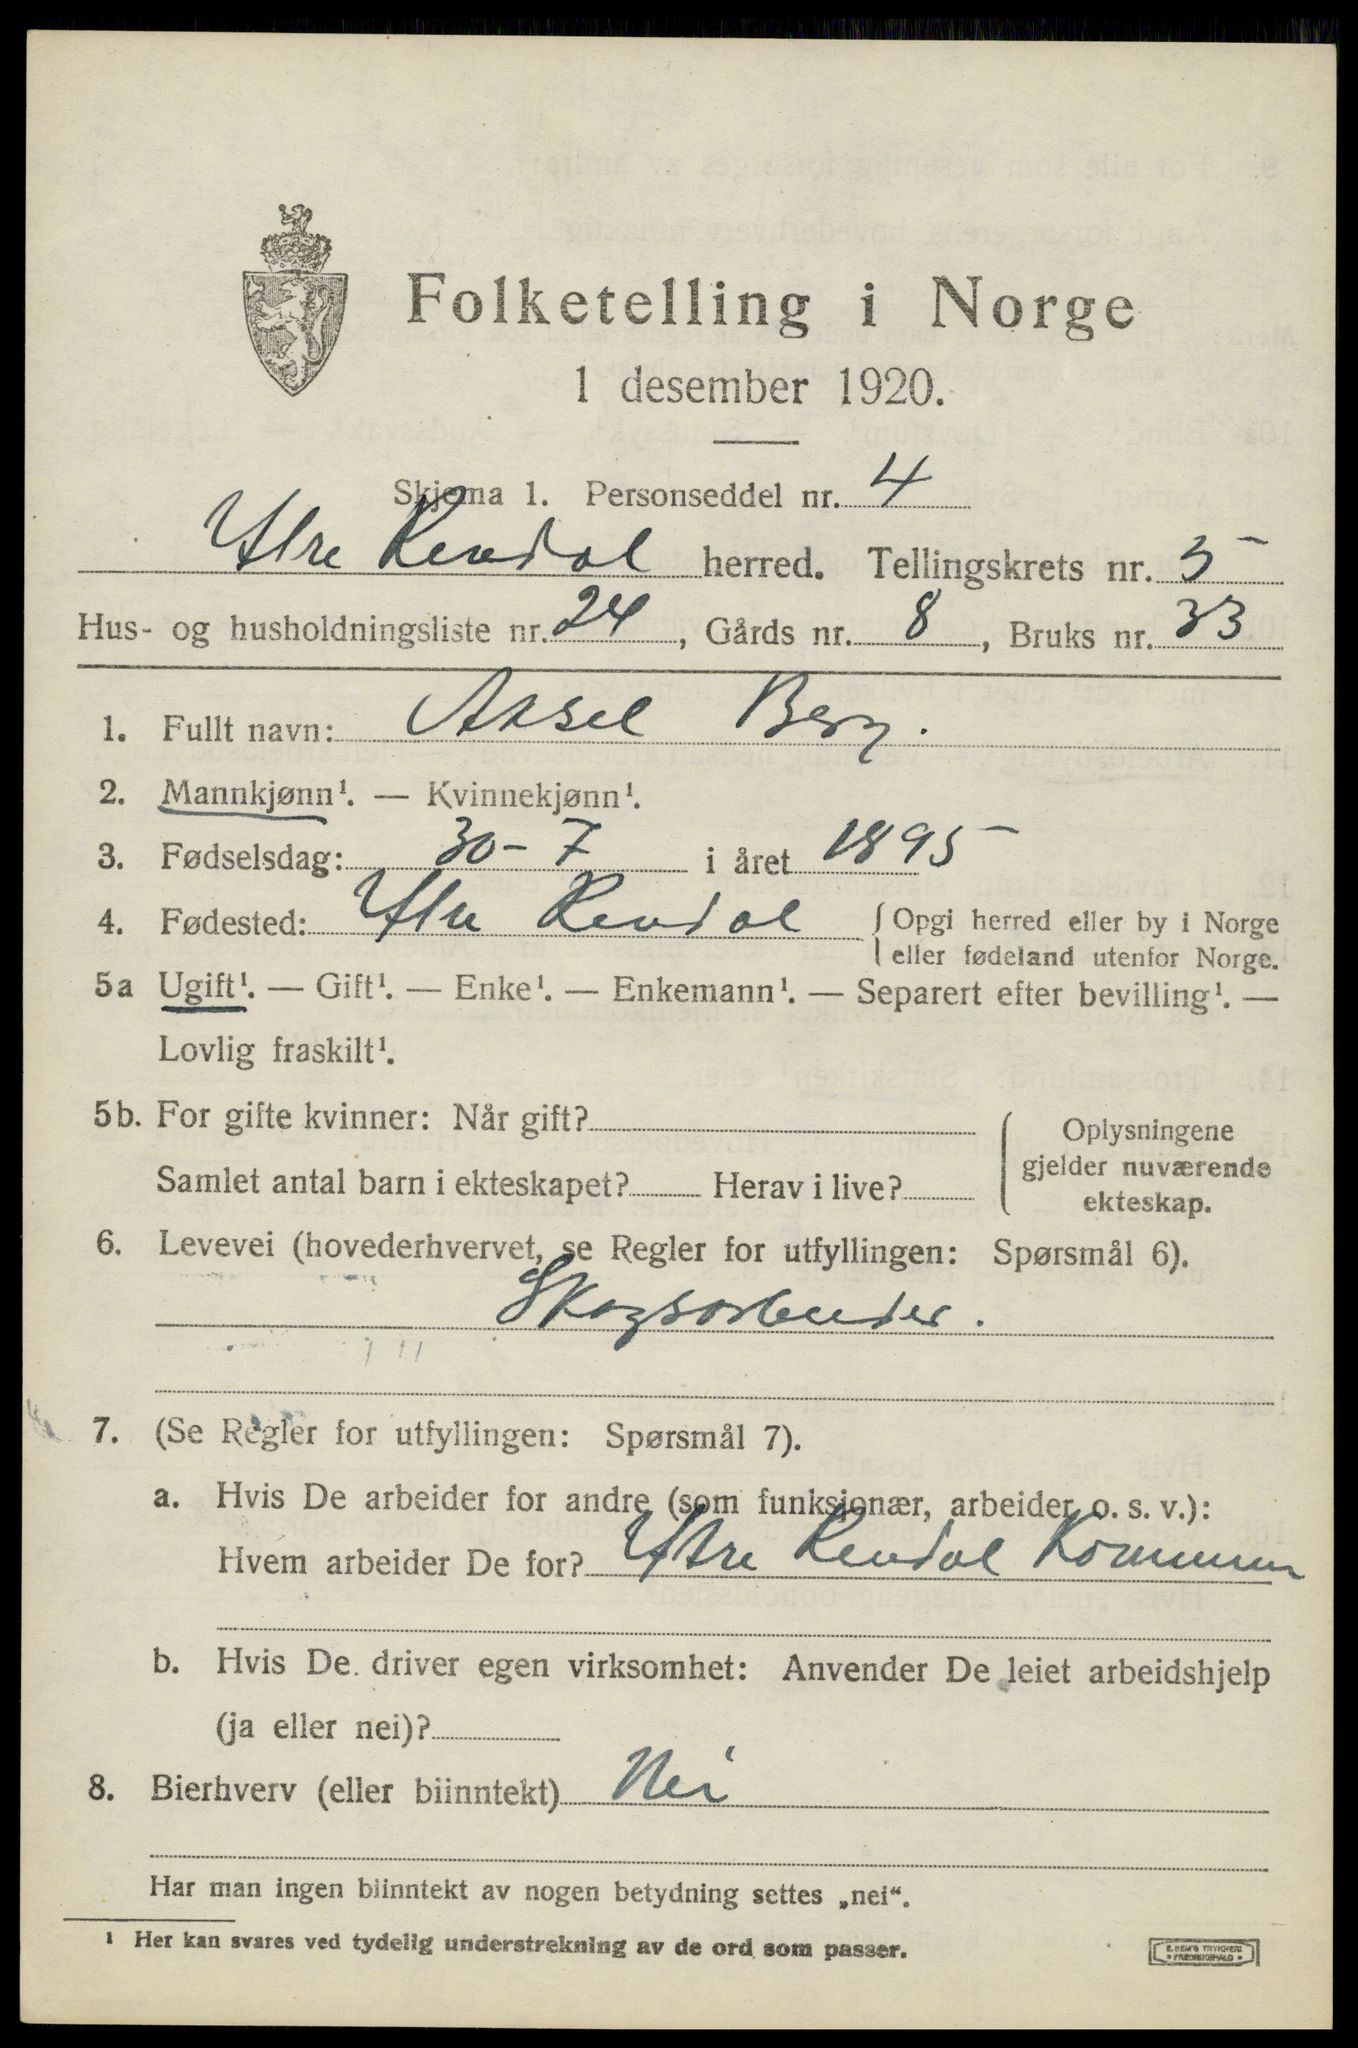 Folketelling i Norge
1 desember 1920.
Skjema 1. Personseddel nr. 4
Ytre Rendal herred. Tellingskrets nr. 5
Hus- og husholdningsliste nr. 24, Gårds nr. 8, Bruks nr. 33
1. Fullt navn: Aksel Berg.
2. Mannkjønn¹. — Kvinnekjønn¹.
3. Fødselsdag: 30-7 i året 1895
4. Fødested: Ytre Rendal { Opgi herred eller by i Norge
eller fødeland utenfor Norge.
5a Ugift¹. — Gift¹. — Enke¹. — Enkemann¹. — Separert efter bevilling¹. —
Lovlig fraskilt¹.
5b. For gifte kvinner: Når gift?
Samlet antal barn i ekteskapet? Herav i live?
Oplysningene
gjelder nuværende
ekteskap.
6. Levevei (hovederhvervet, se Regler for utfyllingen: Spørsmål 6).
Skogsarbeider.
7. (Se Regler for utfyllingen: Spørsmål 7).
a. Hvis De arbeider for andre (som funksjonær, arbeider o. s. v.):
Hvem arbeider De for? Ytre Rendal Kommun
b. Hvis De driver egen virksomhet: Anvender De leiet arbeidshjelp
(ja eller nei)?
8. Bierhverv (eller biinntekt) Nei
Har man ingen biinntekt av nogen betydning settes „nei“.
¹ Her kan svares ved tydelig understrekning av de ord som passer.